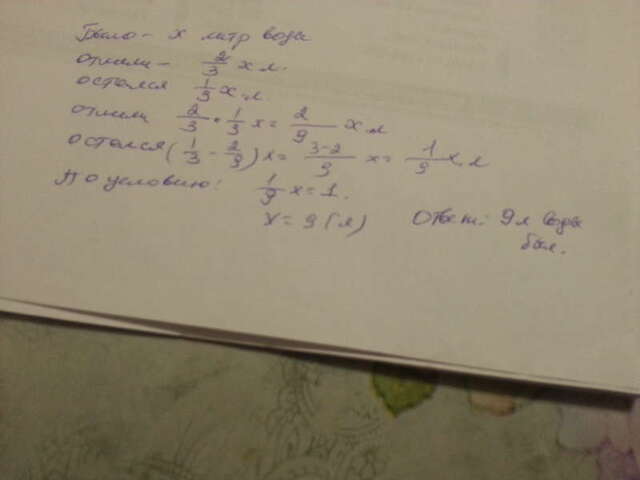 Было - x литр воды
отлили - 2/3 x л.
остался 1/3 x л.
отлили 2/3 · 1/3 x = 2/9 x л
остался (1/3 - 2/9) x = 3-2/9 x = 1/9 x л
По условию: 1/9 x = 1.
x = 9 (л) Ответ: 9 л воды
был.